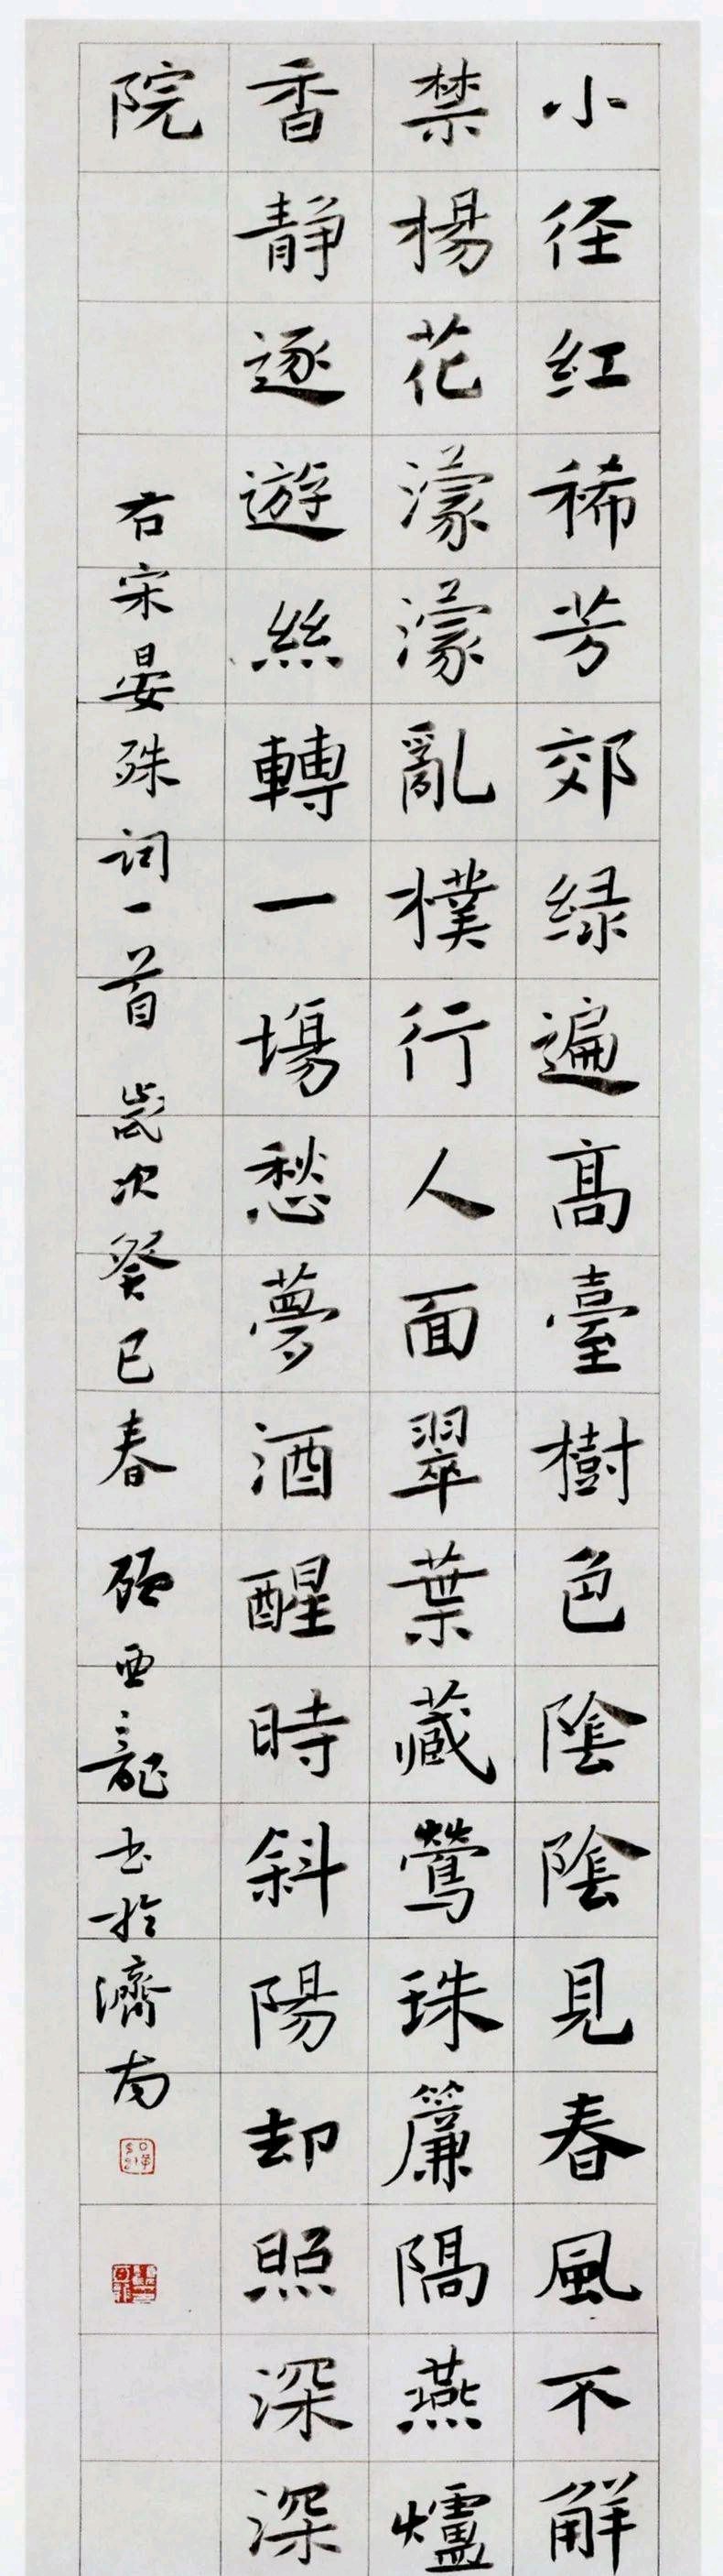 小径红稀芳郊绿遍高臺樹色陰陰見春風不解
禁楊花濛濛亂樸行人面翠葉藏鶯珠簾隔燕爐
香静逐遊絲轉一場愁夢酒醒時斜陽却照深深
院
右宋晏殊词一首 歲次癸巳春 顾亚龍书於濟南